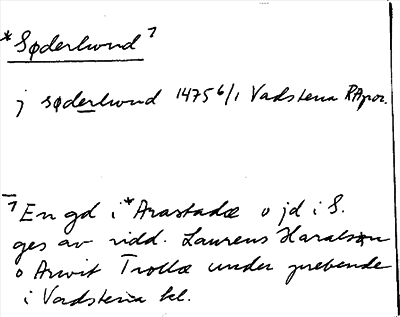 *Søderlwnd ⁊
j søderlwnd 1475 6/1 Vadstena RAper.
⁊ En gd i *Arastadæ o jd i S.
ges av ridd. Laurens Haralsxn
o Arwit Trollæ under prebende
i Vadstena kl.